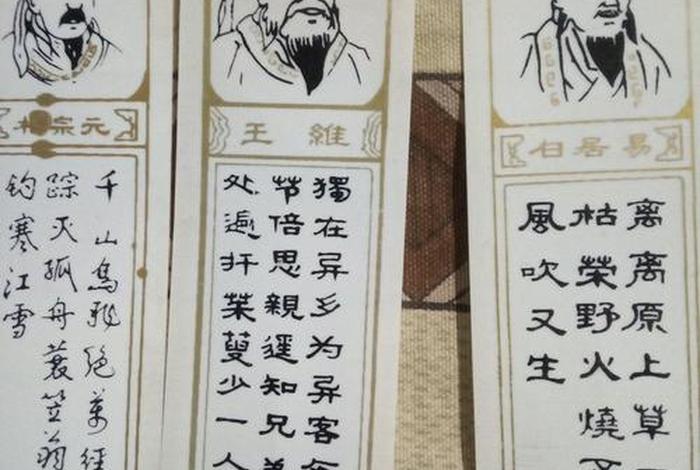 柳宗元
千山鳥飛絕萬徑
踪灭孤舟蓑笠翁
钓寒江雪
王維
獨在异乡为异客
节倍思親遥知兄弟
处遍扦茱萸少一人
白居易
离离原上草一
枯榮野火燒不
風吹又生